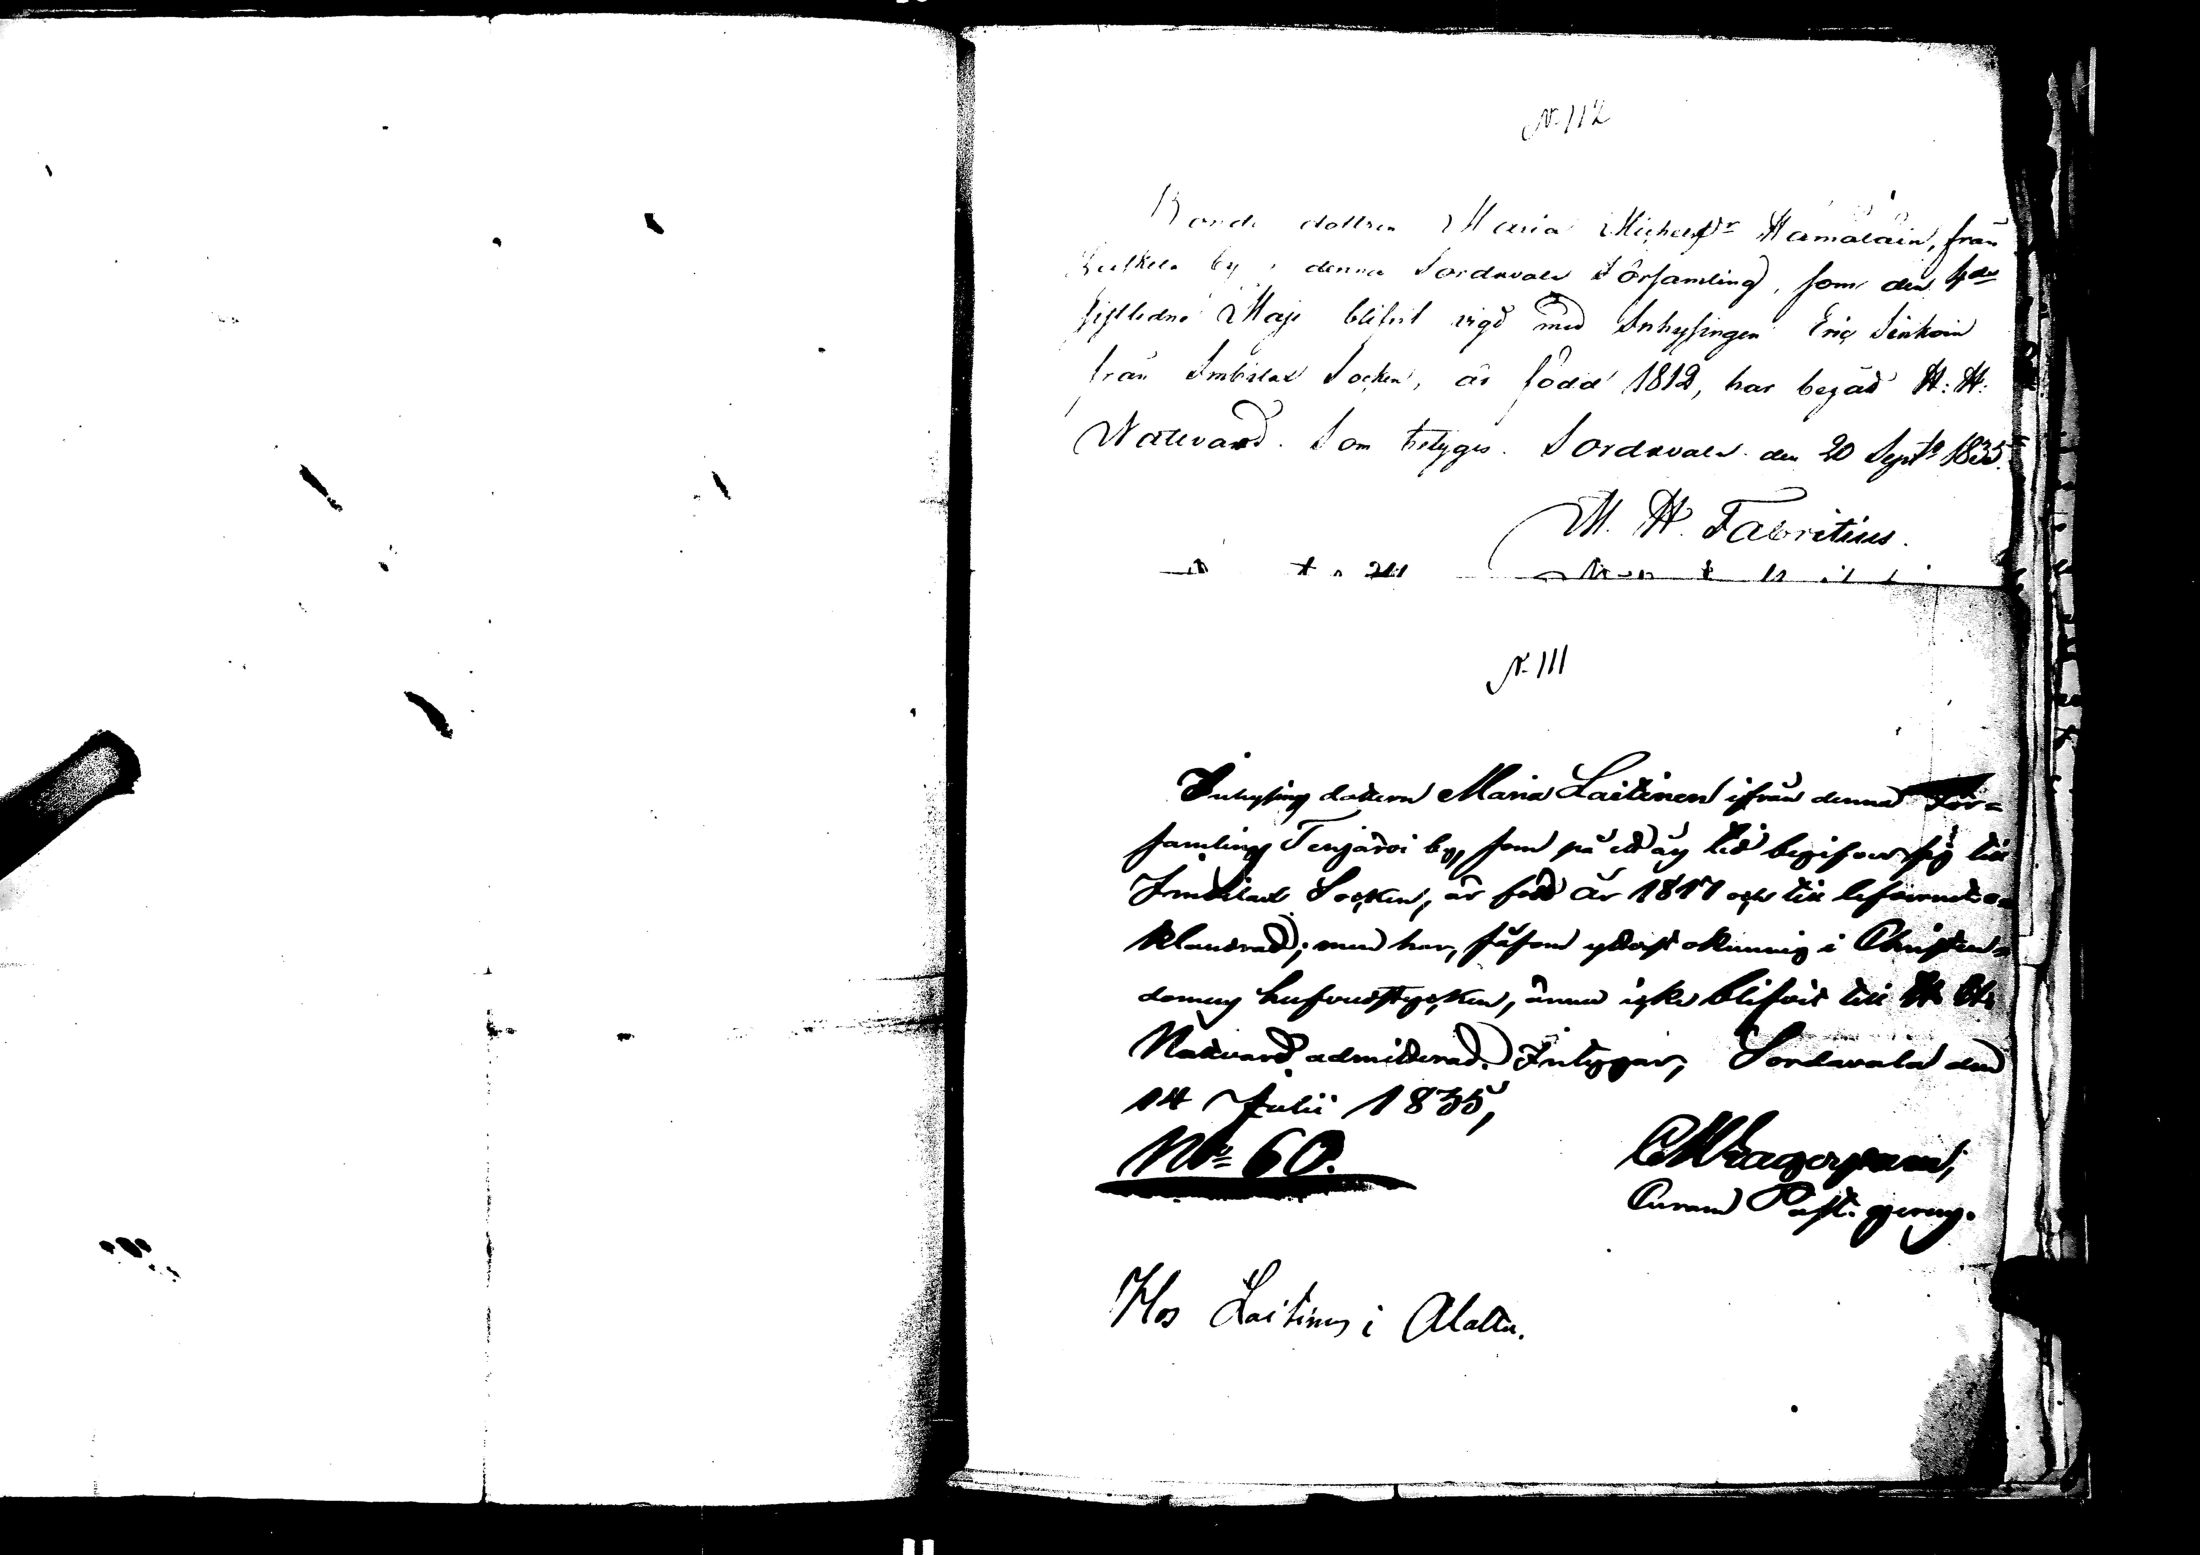 N. 112
Bonde dottren Maria Michelsdr Hämäläin, från
by i denna Sordavala Församling, som den
sistledne Maji blifvit vigd med Inhysingen Eric Sinkoin
från Imbilax Socken, är född 1812, har begåd H: H:
Nattvard. Som betygas. Sordavala den 20 Sept. 1835.
M. H. Fabritius.
N. 111
Inhysing dottern Maria Laitinen ifrån denna För=
samling Tenjärvi by, som på ett år tid begifver sig till
Imbilax Socken, är född år 1817 och till lefvernet o=
klandrad; men har, såsom ytterst okunnig i Christen=
domens hufvudstycken, ännu icke blifvit till H. H.
Nattvard admitterad. Intygar, Sordavala den
14 Julii 1835,
No 60.
Past.
Hos Laitinen i Alattu.